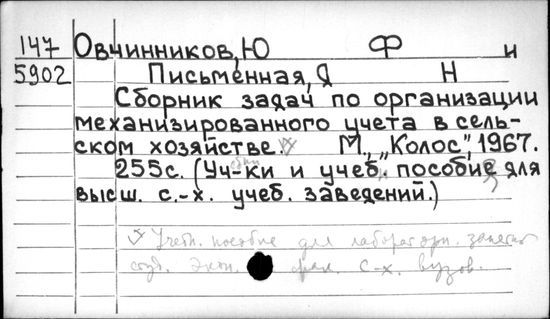 147 Овчинников, Ю Ф и
5902 Письменная, Я Н
Сборник задач по организации
механизированного учета в сель-
ском хозяйстве. М., „Колос", 1967.
255с. (Уч-ки и учеб. пособие для
высш. с.-х. учеб. заведений.)
Учебн. пособие для лаборатори. занятий
студ. экон. фак. с-х. вузов.